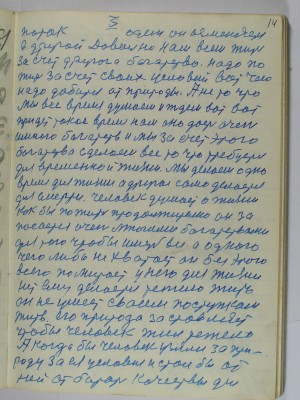 14
порок один он обменяет
а другой Довольно нам всем жить
за счет другого богатство. надо по
жить за счет своих условий Вот чего
надо добиться от природы. А не то что
Мы все время думаем и ждем вот вот
придут такое время нам оно даст очень
много богатств и мы за счет этого
богатства сделаем все то что требуется
для временной жизни. Мы делаем одно
время для жизни а другая само делается
для смерти. человек думает о жизни
как бы пожить продолжительно он за
пасается очень многими богатствами
для того чтобы иметь все а одного
чего либо не хватает он без этого
всего помирает у него для жизни
нет ему делается тяжело жить
он не умеет своими поступками
жить, его природа заставляет
чтобы человек жил тяжело
А когда бы человек взялся за при-
роду за ея условия и стал бы от
ней отбирать качества для